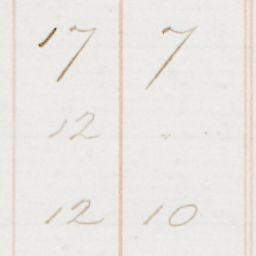 17 7
12 "
12 10